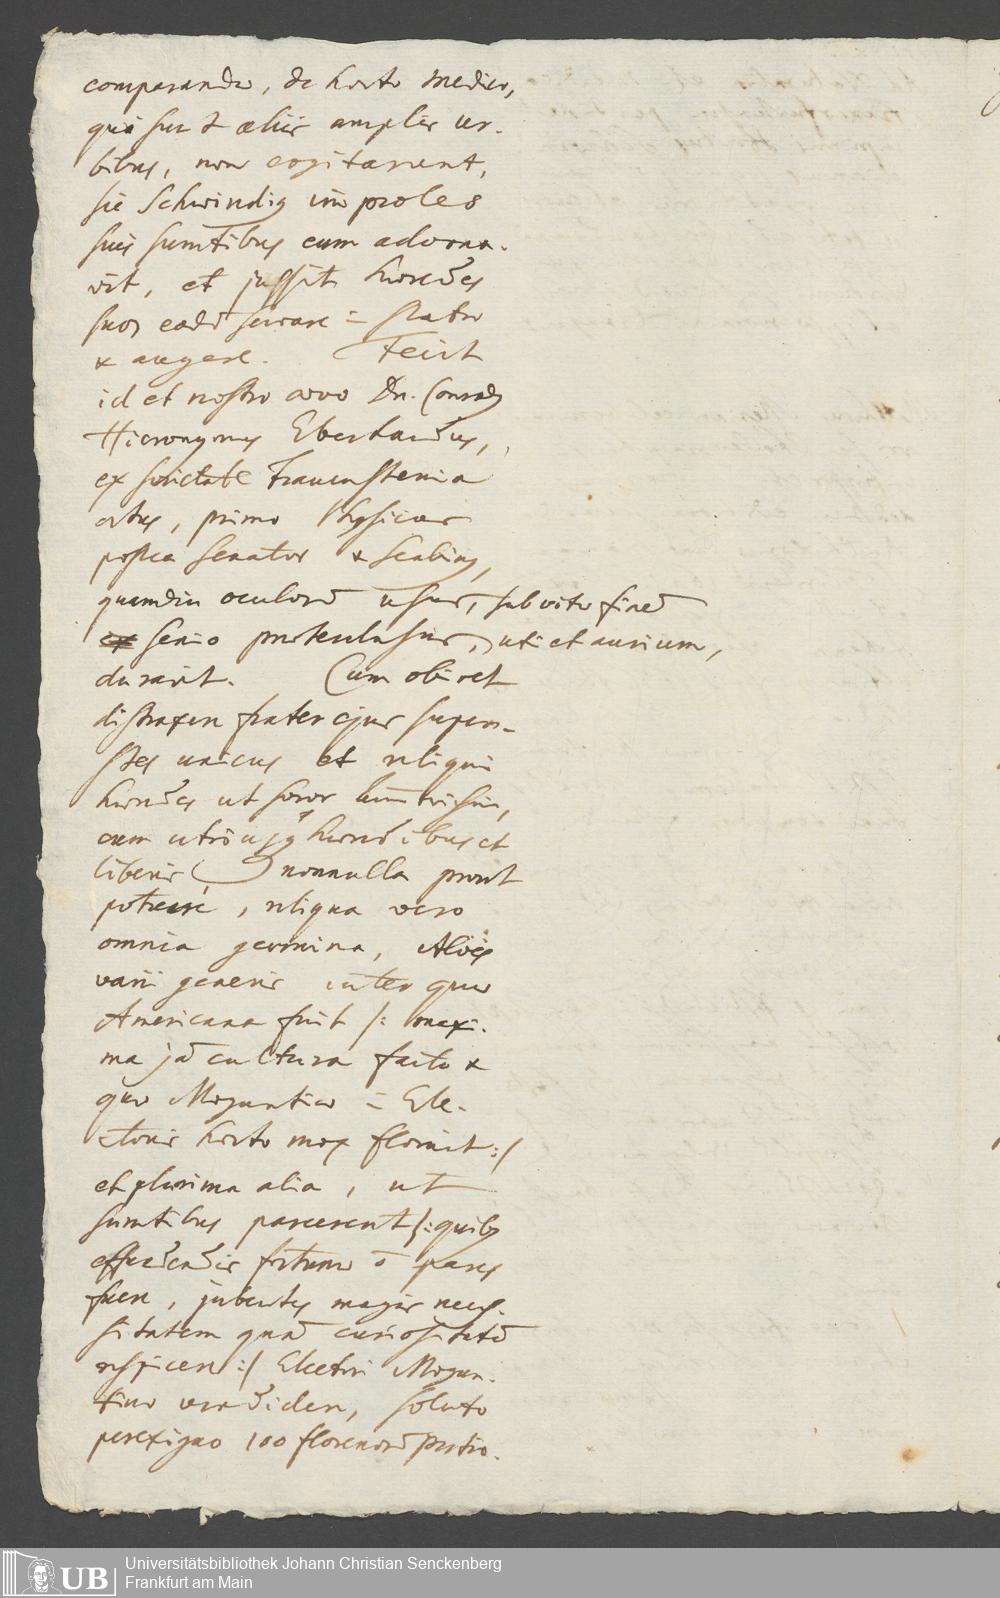 comparando, de horto medico,
qui sunt & aliis amplis ur-
bibus, non cogitarunt,
sic Schwindig improles
suis sumtibus eum adorna-
vit, et jussit
suos servare = statu
& augere. Fecit
id et nostro aevo Dn. Conrad
Hieronymus Eberhardus,
ex societate Frauensteinia
ortus, primo Physicus
postea Senator & Scabinus,
quamdiu oculorū usus, sub vitae finē
senio, uti et aurium,
duravit. Cum obiret
frater ejus super-
stes unicus et reliqui
ut soror
cum et
liberis nonnulla prout
, reliqua vero
omnia germina, Aloës
varii generis inter quas
Americana fuit /: maxi-
ma jā cultura facta &
quae Moguntino = Ele-
ctoris horto mox floruit :/
et plurima alia, ut
sumtibus parcerent /: quibus
fortunae ō pares
, jubentes magis neces-
sitatem quā curiositatē
:/ Electori Mogun-
tino, soluto
perexiguo 100 florenorū pretio.
Universitätsbibliothek Johann Christian Senckenberg
Frankfurt am Main
UB